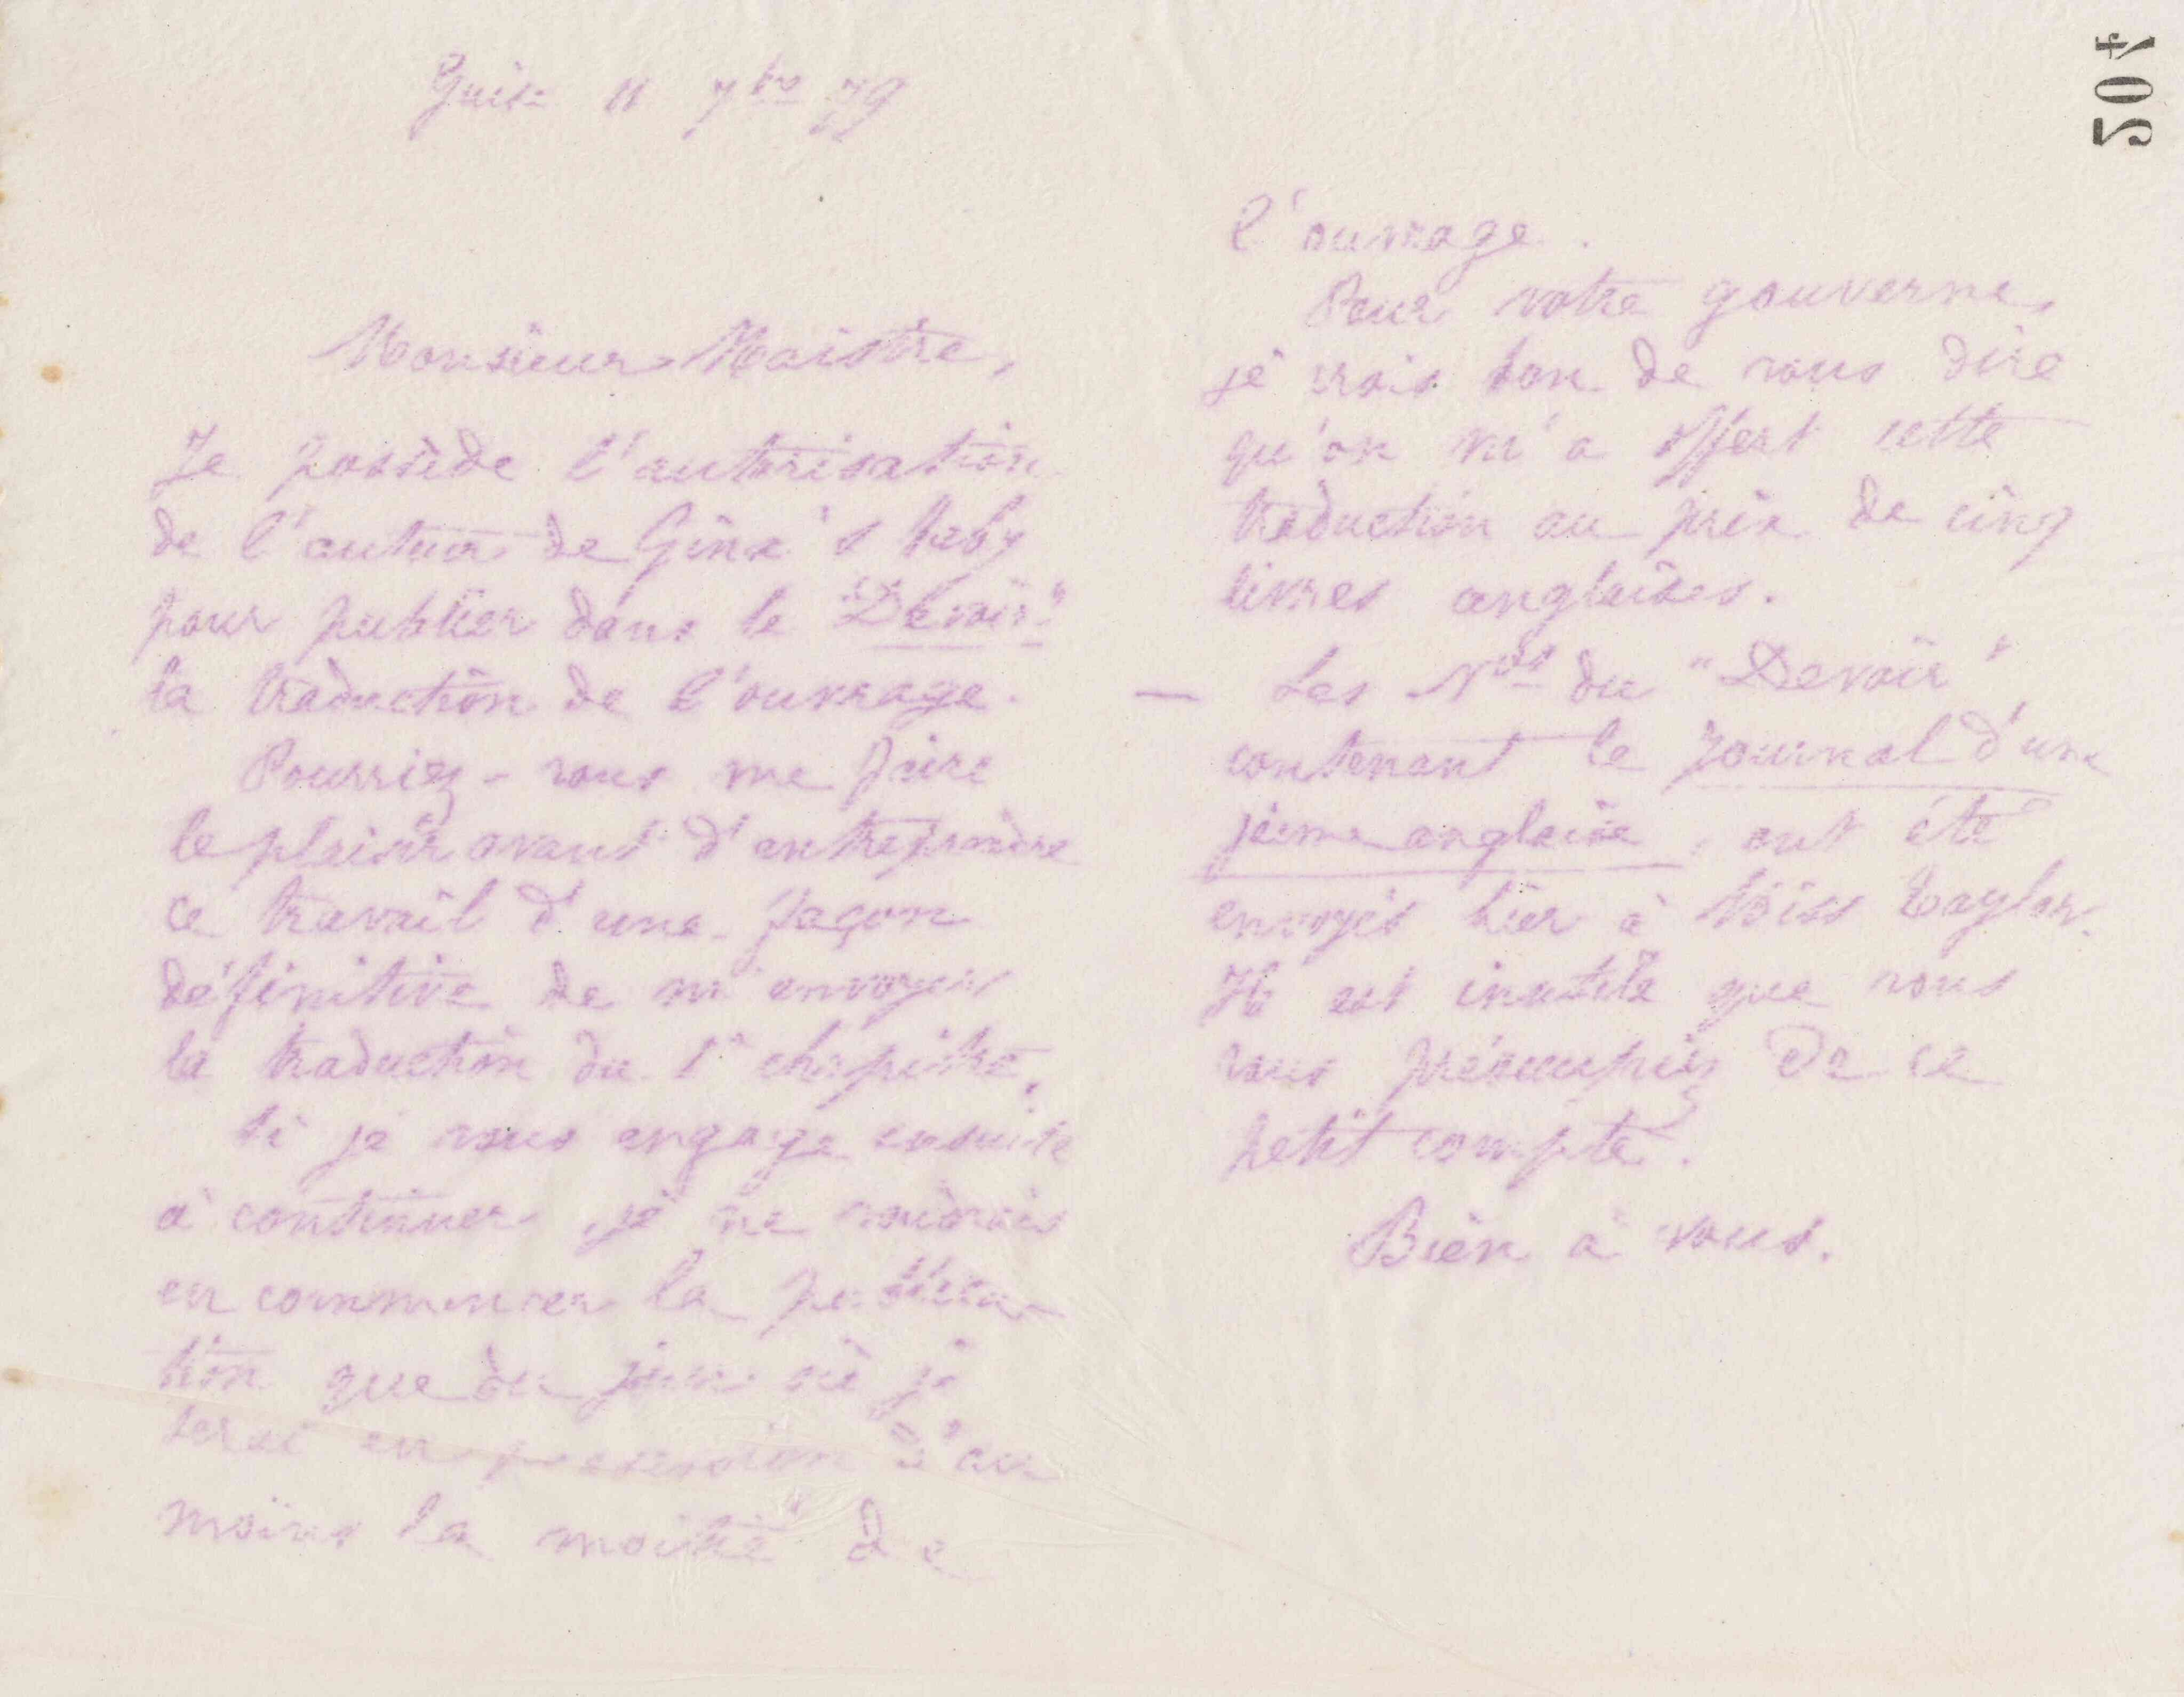 Guise 11 7bre 79
Monsieur Maistre,
Je possède l'autorisation
de l'auteur de Ginx's baby
pour publier dans le "Devoir"
la traduction de l'ouvrage.
Pourriez-vous me faire
le plaisir avant d'entreprendre
ce travail d'une façon
définitive de m'envoyer
la traduction du 1er chapitre.
Si je vous engage ensuite
à continuer, je ne voudrais
en commencer la publica-
tion que du jour où je
serai en possession d'au
moins la moitié de
l'ouvrage.
Pour votre gouverne,
je crois bon de vous dire
qu'on m'a offert cette
traduction au prix de cinq
livres anglaises.
— Les Nos du "Devoir"
contenant le Journal d'une
jeune anglaise, ont été
envoyés hier à Miss Taylor.
Il est inutile que vous
vous préoccupiez de ce
petit compte.
Bien à vous.
504